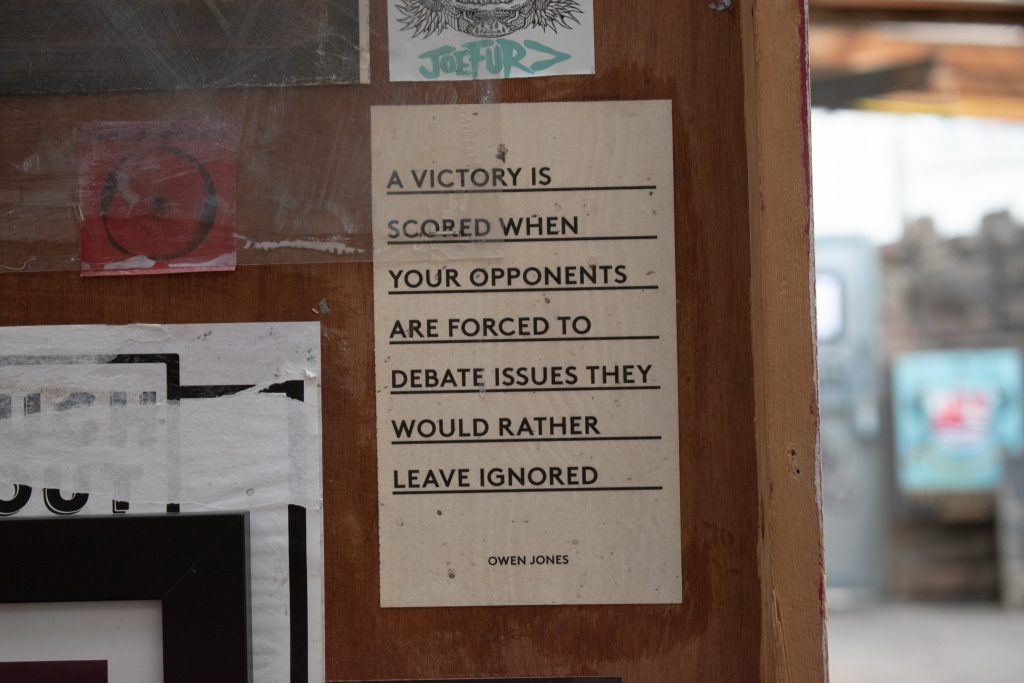 JOEFUR
A VICTORY IS
SCORED WHEN
YOUR OPPONENTS
ARE FORCED TO
DEBATE ISSUES THEY
WOULD RATHER
LEAVE IGNORED
OWEN JONES
OUT